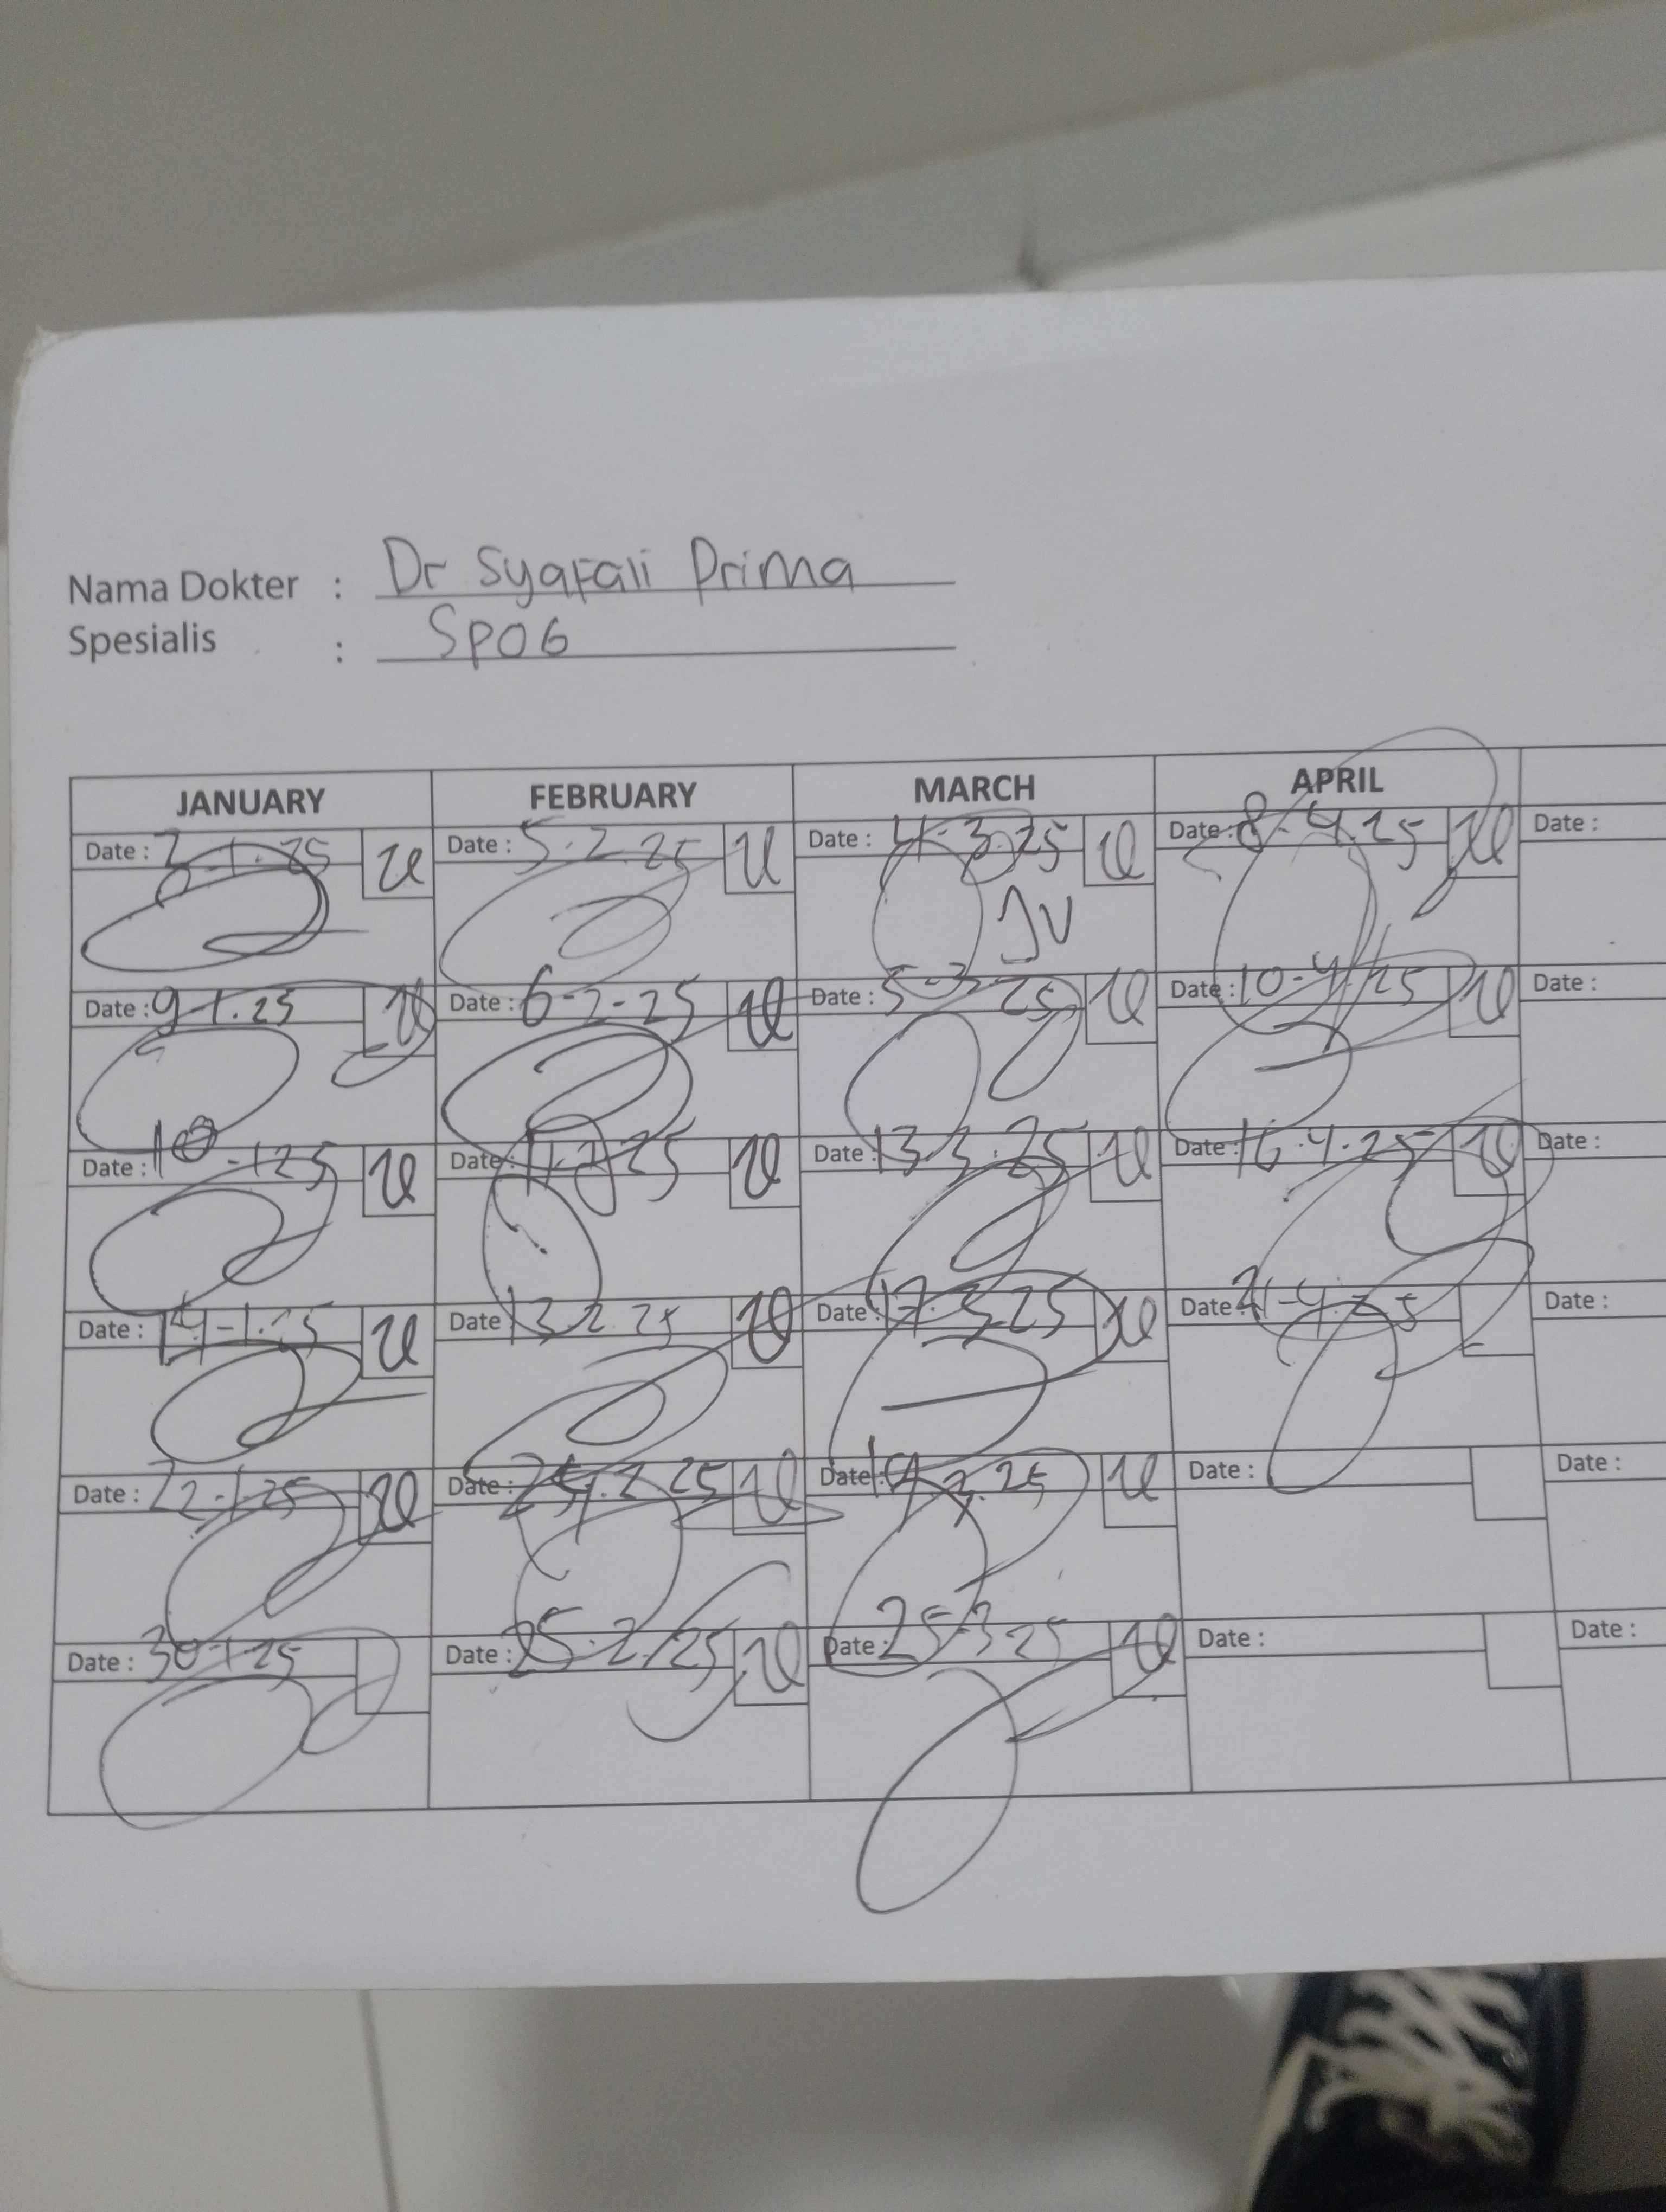 Nama Dokter : Dr Syafali Prima
Spesialis : SPOG
JANUARY FEBRUARY MARCH APRIL
Date : 7-1-25 Date : 5.2.25 Date : 4-3-25 Date : 8-4.25 Date :
JV
Date : 9-1.25 Date : 6-2-25 Date : 5-3-25 Date : 10-4-25 Date :
Date : 10-125 Date : 11.2.25 Date : 13.3.25 Date : 16.4.25 Date :
Date : 14-1.25 Date : 13.2.25 Date : 17.3.25 Date : 21-4.25 Date :
Date : 22-1-25 Date : 24.2.25 Date : 19.3.25 Date : Date :
Date : 30-1-25 Date : 25.2.25 Date : 25-3 25 Date : Date :